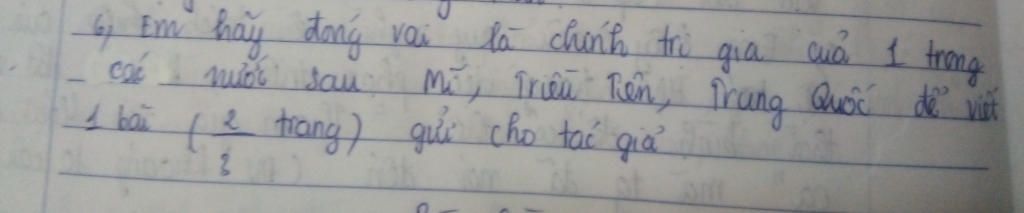 6) Em hãy đóng vai là chính trị gia cuả 1 trong
các nước sau Mĩ, Triều Tiên, Trung Quốc để viết
1 bài ( 2/3 trang) gửi cho tác giả